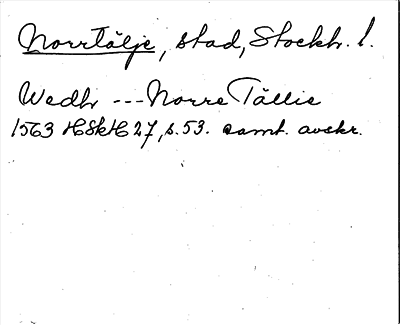 Norrtälje, stad, Stockh. l.
Wedh --- Norre Tällie
1563 HSkH 27, s. 53. samt. avskr.